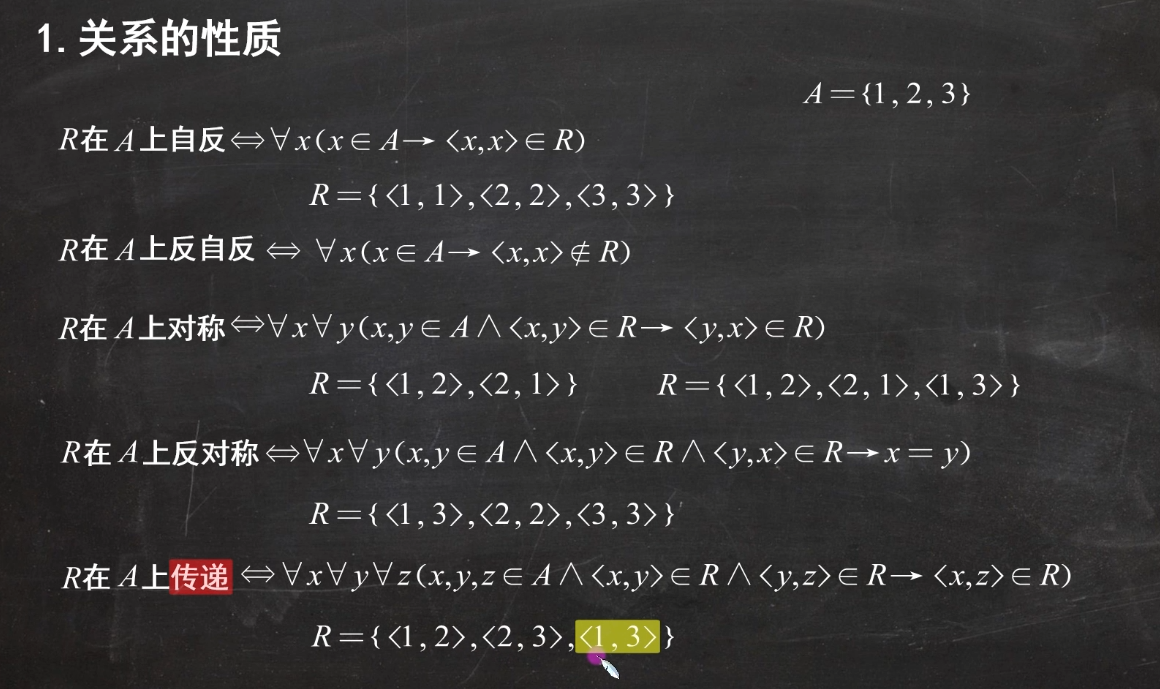 1. 关系的性质
A={1,2,3}
R在A上自反⇔∀x(x∈A→<x,x>∈R)
R={<1,1>,<2,2>,<3,3>}
R在A上反自反⇔∀x(x∈A→<x,x>∉R)
R在A上对称⇔∀x∀y(x,y∈A∧<x,y>∈R→<y,x>∈R)
R={<1,2>,<2,1>} R={<1,2>,<2,1>,<1,3>}
R在A上反对称⇔∀x∀y(x,y∈A∧<x,y>∈R∧<y,x>∈R→x=y)
R={<1,3>,<2,2>,<3,3>}
R在A上传递⇔∀x∀y∀z(x,y,z∈A∧<x,y>∈R∧<y,z>∈R→<x,z>∈R)
R={<1,2>,<2,3>,<1,3>}